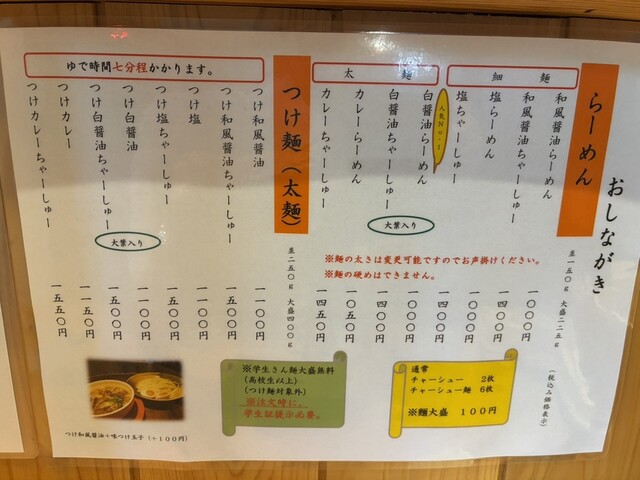 おしながき
(税込み価格表示)
らーめん
並一五〇g 大盛二二五g
細麺
和風醤油らーめん
一〇〇〇円
和風醤油ちゃーしゅー
一四〇〇円
塩らーめん
一〇〇〇円
塩ちゃーしゅー
一四〇〇円
太麺
人気No.1
白醤油らーめん
一〇〇〇円
白醤油ちゃーしゅー
大葉入り
一四〇〇円
カレーらーめん
一〇五〇円
カレーちゃーしゅー
一四五〇円
※麺の太さは変更可能ですのでお声掛けください。
※麺の硬めはできません。
つけ麺(太麺)
並二五〇g 大盛四〇〇g
ゆで時間七分程かかります。
つけ和風醤油
一一〇〇円
つけ和風醤油ちゃーしゅー
一五〇〇円
つけ塩
一一〇〇円
つけ塩ちゃーしゅー
一五〇〇円
つけ白醤油
一一〇〇円
つけ白醤油ちゃーしゅー
大葉入り
一五〇〇円
つけカレー
一一五〇円
つけカレーちゃーしゅー
一五五〇円
通常
チャーシュー 2枚
チャーシュー麺 6枚
※麺大盛 100円
※学生さん麺大盛無料
(高校生以上)
(つけ麺対象外)
※注文時に、
学生証提示必要。
つけ和風醤油+味つけ玉子(+100円)